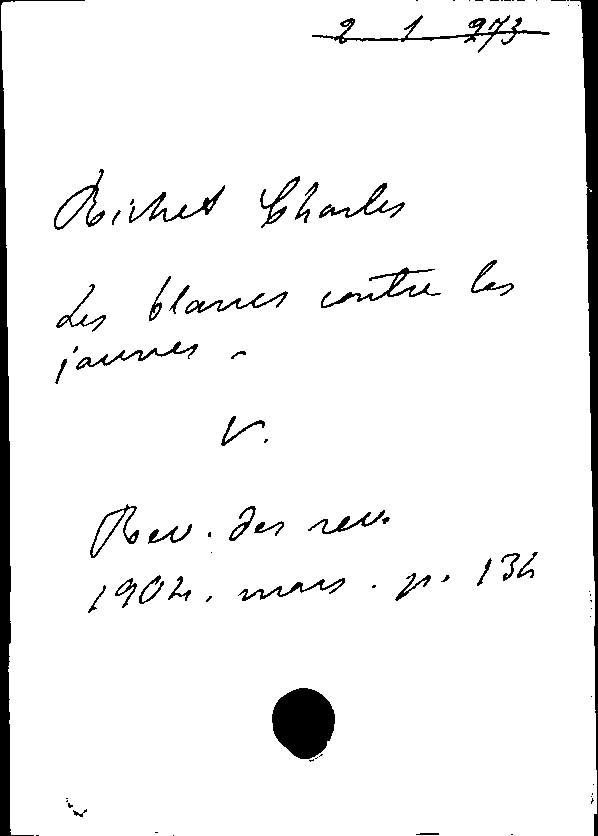 2 1 273
Richet Charles
Les blancs contre les
jaunes -
V.
Rev. des rev.
1904. mars. p. 134